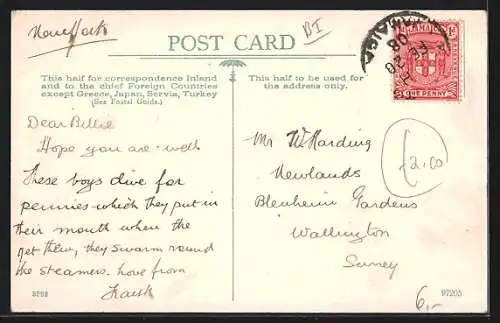 POST CARD
BI
This half for correspondence Inland
and to the chief Foreign Countries
except Greece, Japan, Servia, Turkey
(See Postal Guide.)
This half to be used for
the address only.
JAMAICA
ONE PENNY
Dear Billie
Hope you are well
These boys dive for
pennies which they put in
their mouth when the
get them, they swarm round
the steamers. love from
Mr W Harding
Newlands
Blenheim Gardens
Wallington
Surrey
£2.00
97205
6,-